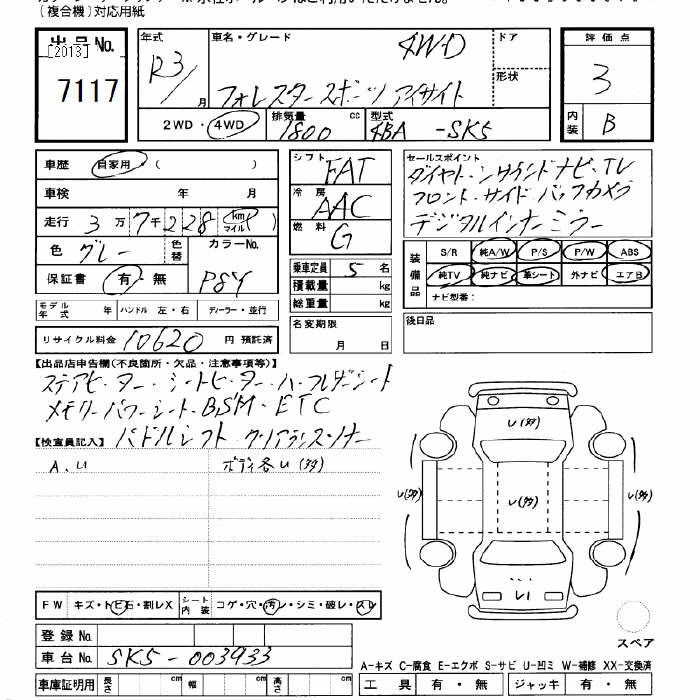 (複合機)対応用紙
出品No.
[2013]
7117
年式
R3/
月
車名・グレード
4WD
フォレスター スポーツ アイサイト
ドア
形状
2WD・4WD
排気量 cc
1800
型式
4BA -SK5
評価点
3
内装
B
車歴 自家用・( )
車検 年 月
走行 3万7千228 km マイル ( )
色 グレー 色替 カラーNo.
P8Y
保証書 有・無
シフト FAT
冷房 AAC
燃料 G
乗車定員 5 名
積載量 kg
総重量 kg
名変期限
月 日
セールスポイント
ダイヤトーンサウンドナビ・TV
フロント・サイド バックカメラ
デジタルインナーミラー
装備品
S/R 純A/W P/S P/W ABS
純TV 純ナビ 革シート 外ナビ エアB
ナビ型番:
後日品
モデル年式 年 ハンドル 左・右 ディーラー・並行
リサイクル料金 10620 円 預託済
【出品店申告欄(不良箇所・欠品・注意事項等)】
ステアヒーター・シートヒーター・ハーフレザーシート
メモリーパワーシート・BSM・ETC
パドルシフト クリアランスソナー
【検査員記入】
A、U
ボディ各U(多)
U(多)
U(多)
U(多)
U(多)
U1
FW キズ・トビ石・割レX シート内装 コゲ・穴・汚レ・シミ・破レ・スレ
登録No.
車台No. SK5-003933
車庫証明用 長さ cm 幅 cm 高さ cm
スペア
A-キズ C-腐食 E-エクボ S-サビ U-凹ミ W-補修 XX-交換済
工具 有・無 ジャッキ 有・無